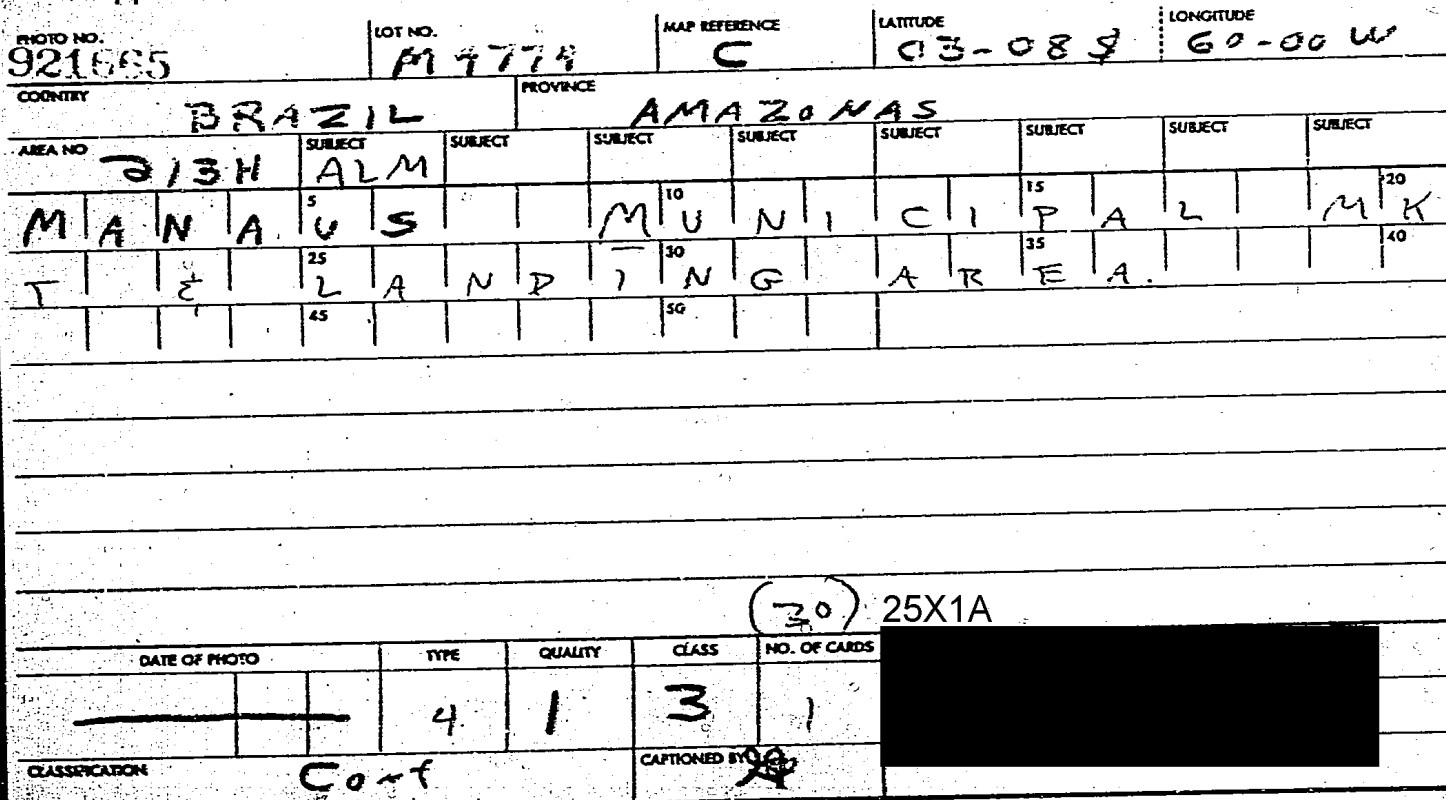 PHOTO NO. LOT NO. MAP REFERENCE LATITUDE LONGITUDE
M 4774 C 03-08 S 60-00 W
COUNTRY BRAZIL PROVINCE AMAZONAS
AREA NO 213H SUBJECT ALM SUBJECT SUBJECT SUBJECT SUBJECT SUBJECT SUBJECT SUBJECT
5 10 15 20
MANAUS MUNICIPAL MK
25 30 35 40
T & LANDING AREA.
45 50
(30) 25X1A
DATE OF PHOTO TYPE QUALITY CLASS NO. OF CARDS
4 1 3 1
CLASSIFICATION Conf CAPTIONED BY